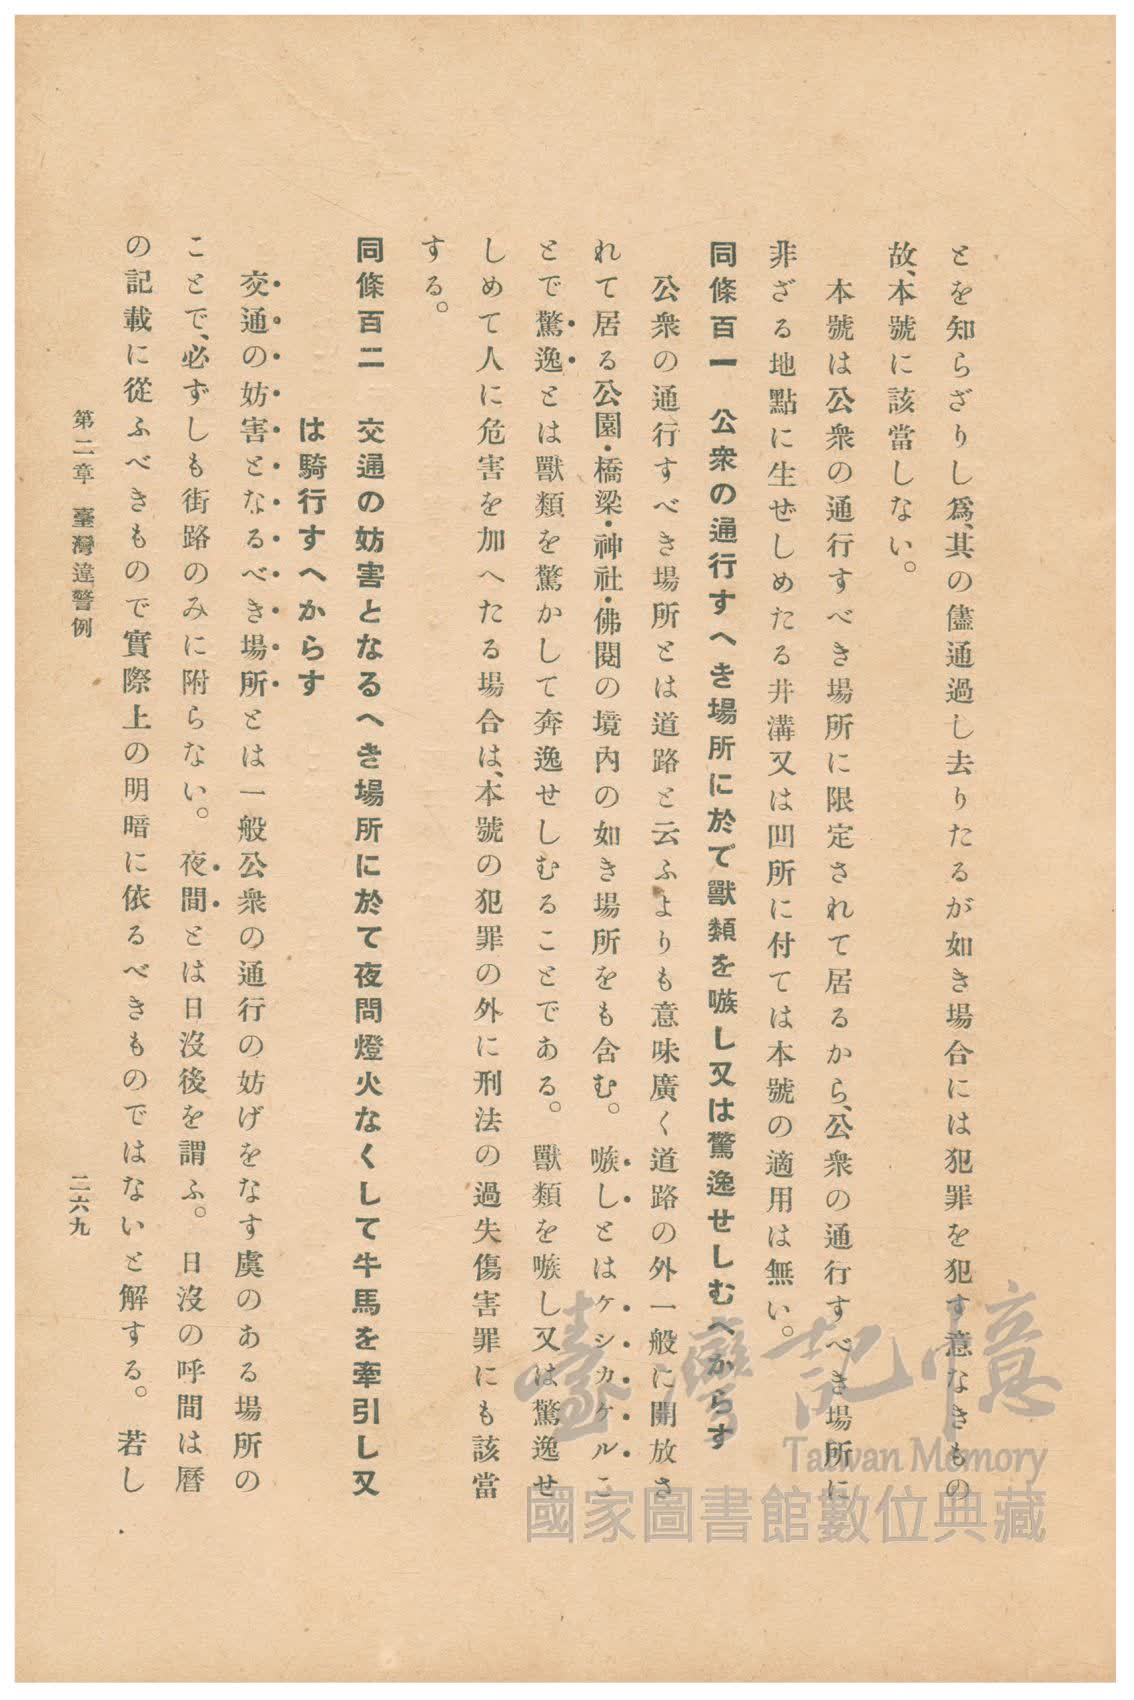 とを知らざりし爲、其の儘通過し去りたるが如き場合には犯罪を犯す意なきもの
故、本號に該當しない。
本號は公衆の通行すべき場所に限定されて居るから、公衆の通行すべき場所に
非ざる地點に生ぜしめたる井溝又は凹所に付ては本號の適用は無い。
同條百一　公衆の通行すへき場所に於て獸類を嗾し又は驚逸せしむへからす
公衆の通行すべき場所とは道路と云ふよりも意味廣く道路の外一般に開放さ
れて居る公園・橋梁・神社・佛閣の境內の如き場所をも含む。嗾しとはケシカケルこ
とで驚逸とは獸類を驚かして奔逸せしむることである。獸類を嗾し又は驚逸せ
しめて人に危害を加へたる場合は、本號の犯罪の外に刑法の過失傷害罪にも該當
する。
同條百二　交通の妨害となるへき場所に於て夜間燈火なくして牛馬を牽引し又
は騎行すへからす
交通の妨害となるべき場所とは一般公衆の通行の妨げをなす虞のある場所の
ことで、必ずしも街路のみに附らない。夜間とは日沒後を謂ふ。日沒の呼間は曆
の記載に從ふべきもので實際上の明暗に依るべきものではないと解する。若し
第二章　臺灣違警例
二六九
臺灣記憶
Taiwan Memory
國家圖書館數位典藏